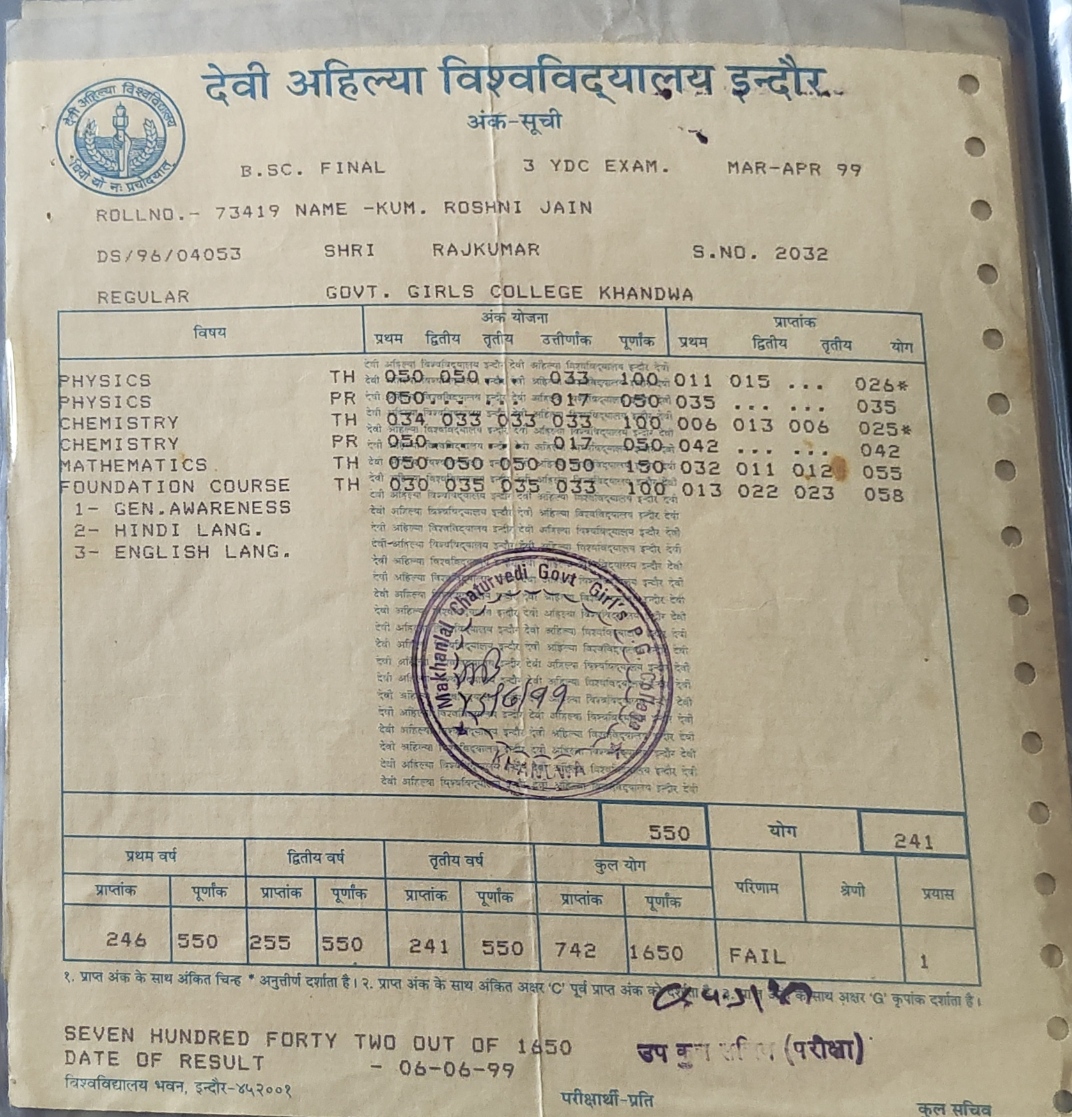 देवी अहिल्या विश्वविद्यालय इन्दौर
देवी अहिल्या विश्वविद्यालय
धियो यो नः प्रचोदयात्
अंक-सूची
B.SC. FINAL 3 YDC EXAM. MAR-APR 99
ROLLNO.- 73419 NAME -KUM. ROSHNI JAIN
DS/96/04053 SHRI RAJKUMAR S.NO. 2032
REGULAR GOVT. GIRLS COLLEGE KHANDWA
विषय अंक योजना प्राप्तांक
प्रथम द्वितीय तृतीय उत्तीर्णांक पूर्णांक प्रथम द्वितीय तृतीय योग
PHYSICS TH 050 050 ... 033 100 011 015 ... 026*
PHYSICS PR 050 ... ... 017 050 035 ... ... 035
CHEMISTRY TH 034 033 033 033 100 006 013 006 025*
CHEMISTRY PR 050 ... ... 017 050 042 ... ... 042
MATHEMATICS TH 050 050 050 050 150 032 011 012 055
FOUNDATION COURSE TH 030 035 035 033 100 013 022 023 058
1- GEN.AWARENESS
2- HINDI LANG.
3- ENGLISH LANG.
Makhanlal Chaturvedi Govt Girl's P.G. College
15/6/99
KHANDWA
550 योग 241
प्रथम वर्ष द्वितीय वर्ष तृतीय वर्ष कुल योग परिणाम श्रेणी प्रयास
प्राप्तांक पूर्णांक प्राप्तांक पूर्णांक प्राप्तांक पूर्णांक प्राप्तांक पूर्णांक
246 550 255 550 241 550 742 1650 FAIL 1
१. प्राप्त अंक के साथ अंकित चिन्ह * अनुत्तीर्ण दर्शाता है। २. प्राप्त अंक के साथ अंकित अक्षर 'C' पूर्व प्राप्त अंक को दर्शाता है। ३. प्राप्त अंक के साथ अक्षर 'G' कृपांक दर्शाता है।
SEVEN HUNDRED FORTY TWO OUT OF 1650
उप कुल सचिव (परीक्षा)
DATE OF RESULT - 06-06-99
विश्वविद्यालय भवन, इन्दौर-४५२००१
परीक्षार्थी-प्रति
कुल सचिव